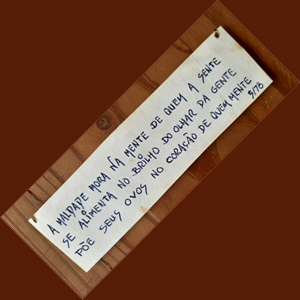 A MALDADE MORA NA MENTE DE QUEM A SENTE
SE ALIMENTA NO BRILHO DO OLHAR DA GENTE
PÕE SEUS OVOS NO CORAÇÃO DE QUEM MENTE
3/78